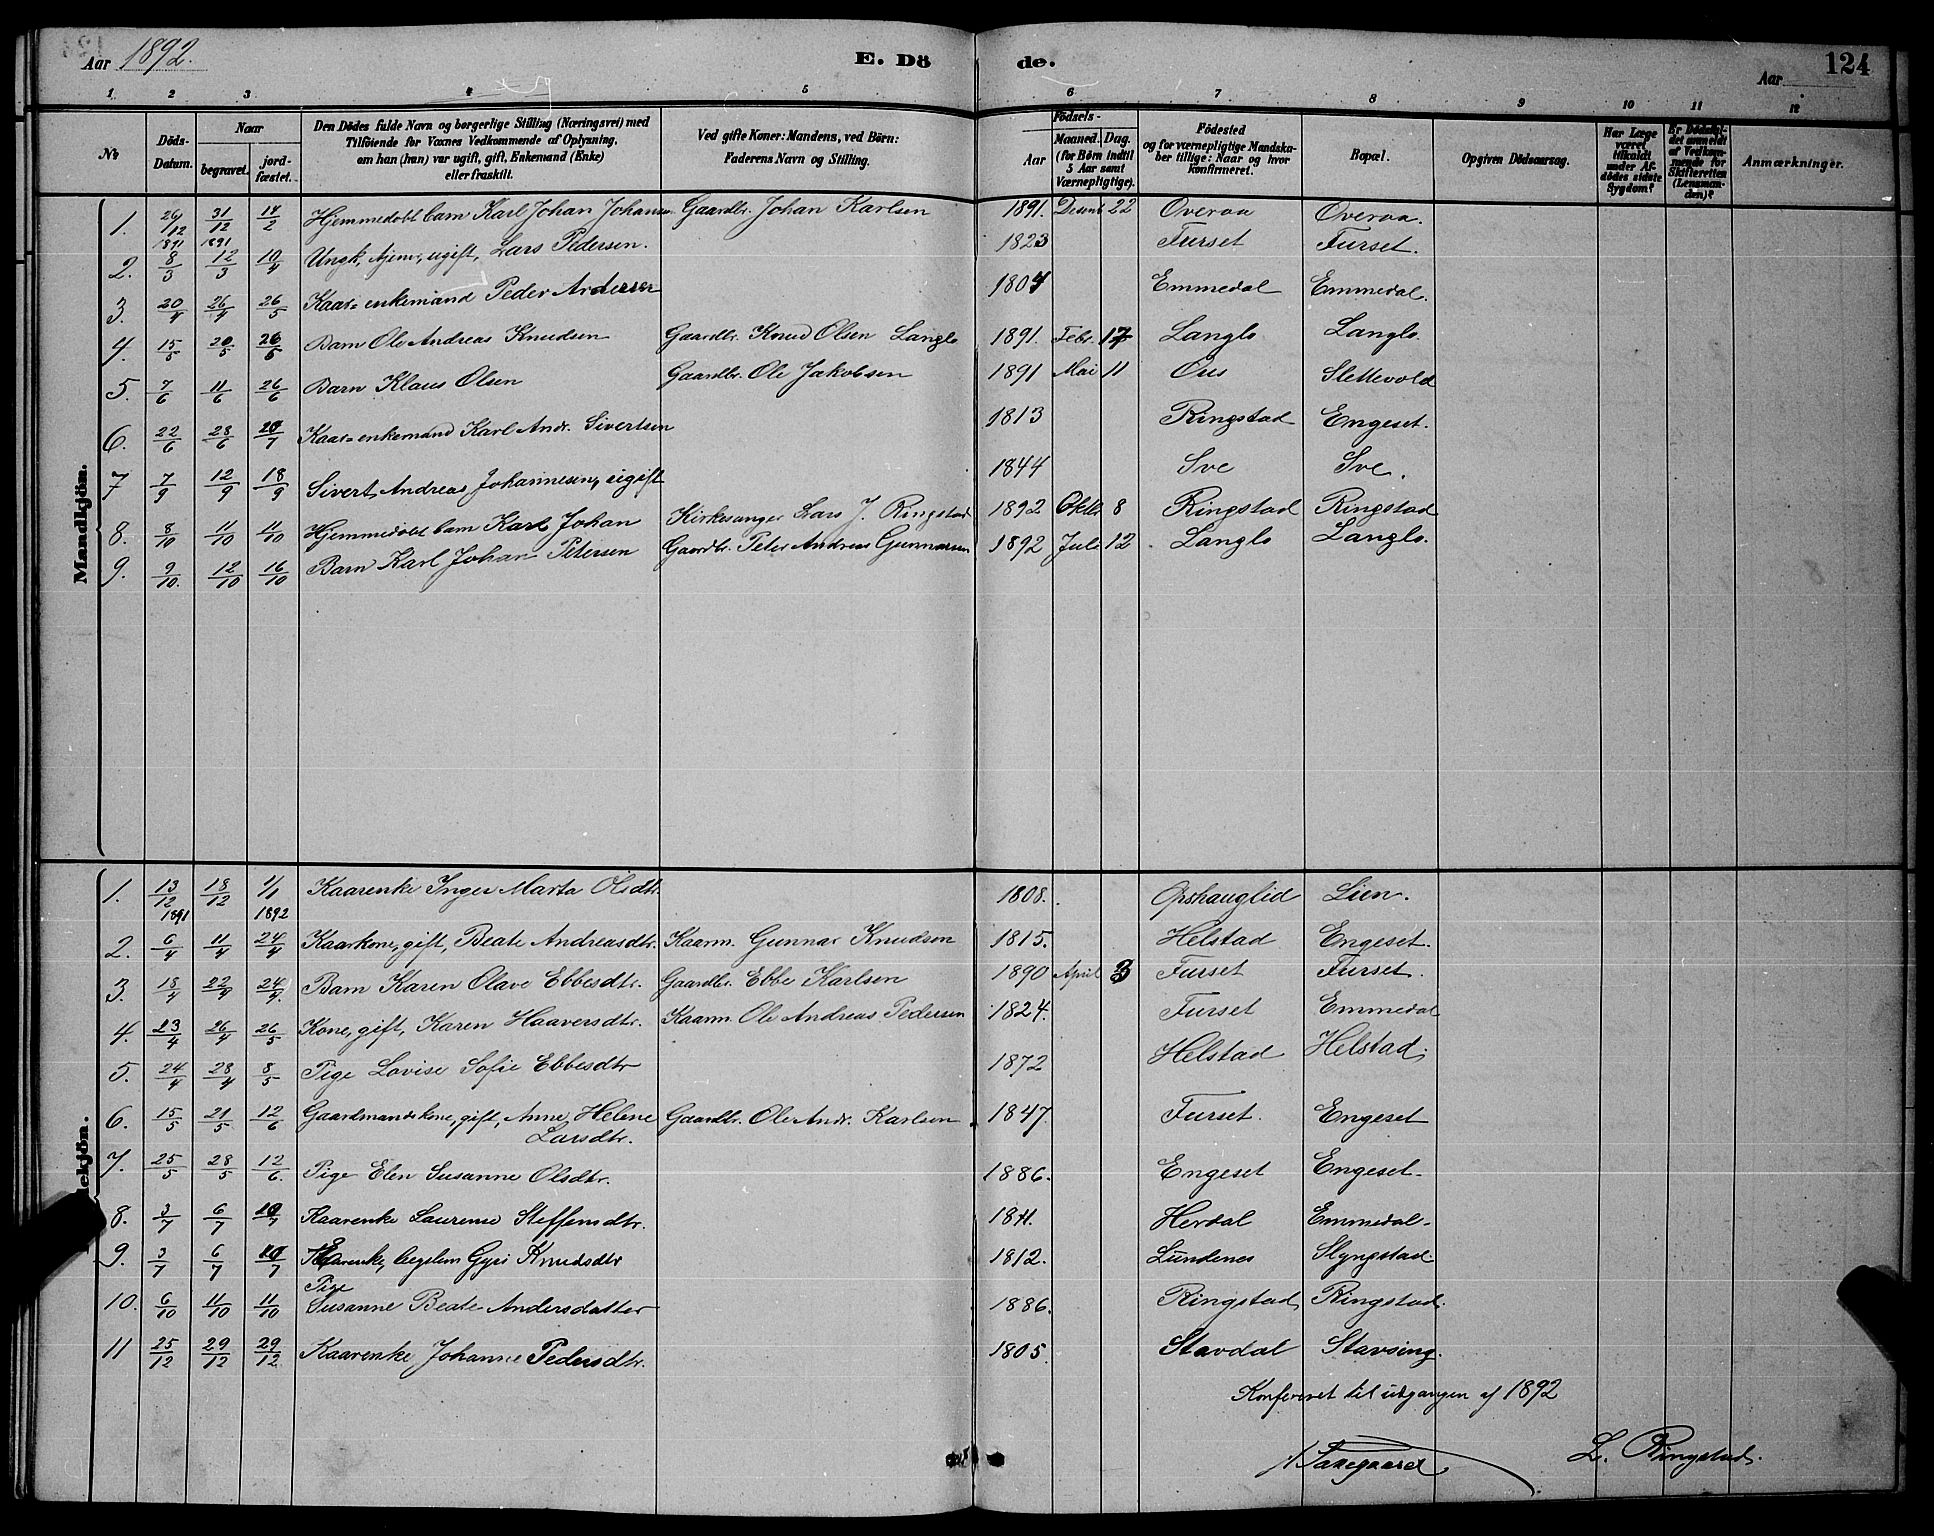 Aar 1892. E. Dö de. Aar 124
1 2 3 4 5 6 7 8 9 10 11 12
No Döds-Datum. Naar begravet. jord-fæstet. Den Dödes fulde Navn og borgerlige Stilling (Næringsvei) med Tilföiende for Voxnes Vedkommende af Oplysning, om han (hun) var ugift, gift, Enkemand (Enke) eller fraskilt. Ved gifte Koner: Mandens, ved Börn: Faderens Navn og Stilling. Födsels- Aar Maaned. Dag. (for Börn indtil 5 Aar samt Værnepligtige). Födested og for værnepligtige Mandskaber tillige: Naar og hvor konfirmeret. Bopæl. Opgiven Dödsaarsag. Har Læge været tilkaldt under Afdödes sidste Sygdom? Er Dödsfaldet anmeldt af Vedkommende for Skifteretten (Lensmanden)? Anmærkninger.
Mandkjön.
1. 26/12 1891 31/12 1891 14/2 Hjemmedöbt barn Karl Johan Johansen Gaardbr. Johan Karlsen 1891. Desemb 22 Overaa Overaa.
2. 8/3 12/3 10/4 Ungk, tjener, ugift, Lars Pedersen. 1823 Furset Furset.
3. 20/4 26/4 26/5 Kaar=enkemand Peder Andersen 1804 Emmedal Emmedal.
4. 15/5 20/5 26/5 Barn Ole Andreas Knudsen Gaardbr. Knud Olsen Langlo 1891. Febr. 17 Langlo Langlo.
5. 7/6 11/6 26/6 Barn Klaus Olsen Gaardbr. Ole Jakobsen 1891 Mai 11 Ous Slettevold
6. 22/6 28/6 20/7 Kaar=enkemand Karl Andr. Sivertsen 1813 Ringstad Engeset.
7 7/9 12/9 18/9 Sivert Andreas Johannesen, ugift 1844 Sve Sve.
8. 8/10 11/10 11/10 Hjemmedöbt barn Karl Johan Kirkesanger Lars J. Ringstad 1892 Oktbr 8 Ringstad Ringstad
9. 9/10. 12/10 16/10 Barn Karl Johan Petersen Gaardbr. Peter Andreas Gunnarsen 1892 Juli 12 Langlo Langlo.
Kvindekjön.
1. 13/12 1891 18/12 1/1 1892 Kaarenke Inger Marta Olsdtr. 1808. Opshauglid Lien.
2. 6/4 11/4 24/4 Kaarkone, gift, Beate Andreasdtr. Kaarm. Gunnar Knudsen 1815. Helstad Engeset.
3. 18/4 22/4 24/4. Barn Karen Olave Ebbesdtr. Gaardbr. Ebbe Karlsen 1890 April 3 Furset Furset.
4. 23/4 26/4 26/5 Kone, gift, Karen Haaversdtr. Kaarm. Ole Andreas Pedersen 1824. Furset Emmedal
5. 24/4 28/4 8/5 Pige Lovise Sofie Ebbesdtr 1872 Helstad Helstad.
6. 15/5 21/5 12/6 Gaardmandskone, gift, Anne Helene Larsdtr. Gaardbr. Ole Andr. Karlsen 1847. Furset. Engeset
7. 25/5 28/5 12/6. Pige Elen Susanne Olsdtr. 1886. Engeset Engeset.
8. 3/7 6/7 10/7 Kaarenke Laurense Steffensdtr. 1811. Herdal Emmedal.
9. 3/7 6/7 10/7 Gyri Knudsdtr 1812. Lundenes Slyngstad.
10. 6/10 11/10 11/10 Pige Susanne Beate Andersdatter 1886. Ringstad Ringstad.
11 25/12 29/12 29/12 Kaarenke Johanne Pedersdtr. 1805. Stavdal Stavseng.
Konfereret til utgangen af 1892
L. Ringstad.